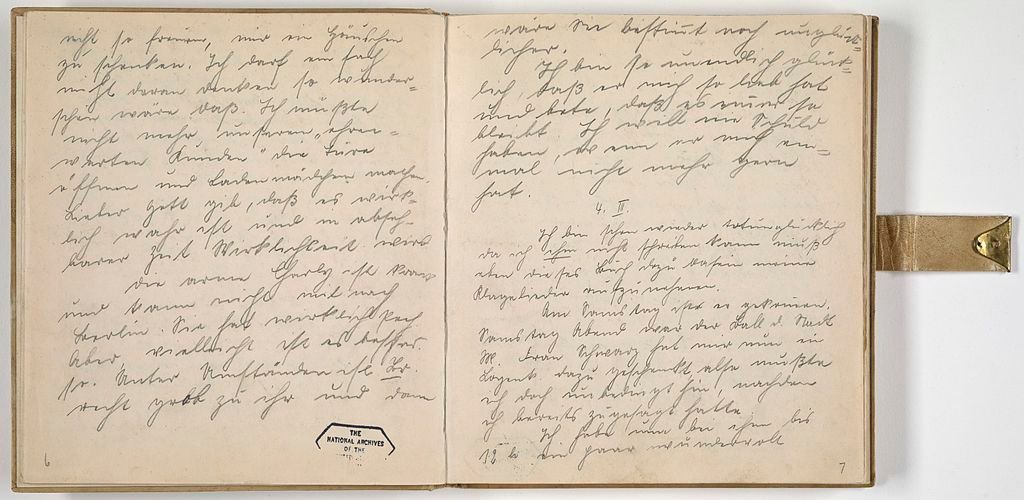 recht so freuen, mir ein Häuschen
zu schenken. Ich darf ein fach
nicht daran denken so wunder-
schön wäre daß. Ich müßte
nicht mehr unseren „ehren-
werten Kunden“ die Türe
öffnen und Ladenmädchen machen.
Lieber Gott gib, daß es wirk-
lich wahr ist und in abseh-
barer Zeit Wirklichkeit wird
Die arme Charly ist krank
und kann nicht mit nach
Berlin. Sie hat wirklich Pech
Aber vielleicht ist es besser
so. Unter Umständen ist Br.
recht grob zu ihr und dann
THE
NATIONAL ARCHIVES
OF THE
6
wäre sie bestimmt noch unglück-
licher.
Ich bin so unendlich glück-
lich, daß er mich so lieb hat
und bete, daß es immer so
bleibt. Ich will nie Schuld
haben, wenn er mich ein-
mal nicht mehr gern
hat.
4. II.
Ich bin schon wieder totunglücklich
da ich ihm nicht schreiben kann muß
eben dieses Buch dazu da sein meine
Klagelieder aufzunehmen.
Am Samstag ist er gekommen.
Samstag Abend war der Ball d. Stadt
M. Frau Schwarz hat mir nun ein
Logenk. dazu geschenkt also mußte
ich doch unbedingt hin, nachdem
ich bereits zugesagt hatte.
Ich habe nun bei ihm bis
12 h ein paar wundervoll
7